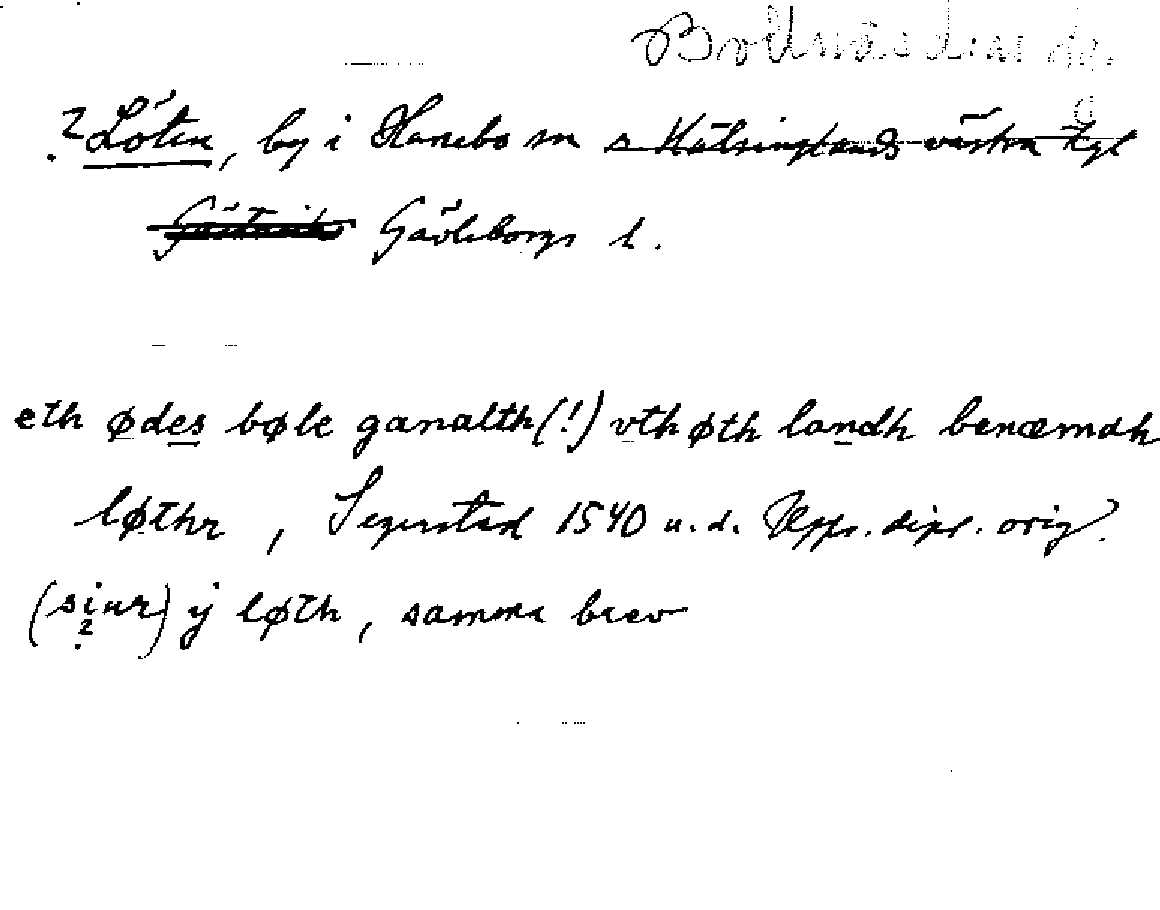 Bollnäs
? Löten, by i Hanebo sn s Hälsinglands västra tgl
Gästrik Gävleborgs l.
eth ødes bøle gamalth(!) vth øth landh benæmdh
løthr, Segerstad 1540 u.d. Upps. dipl. orig.
(siur) ÿ løth, samma brev